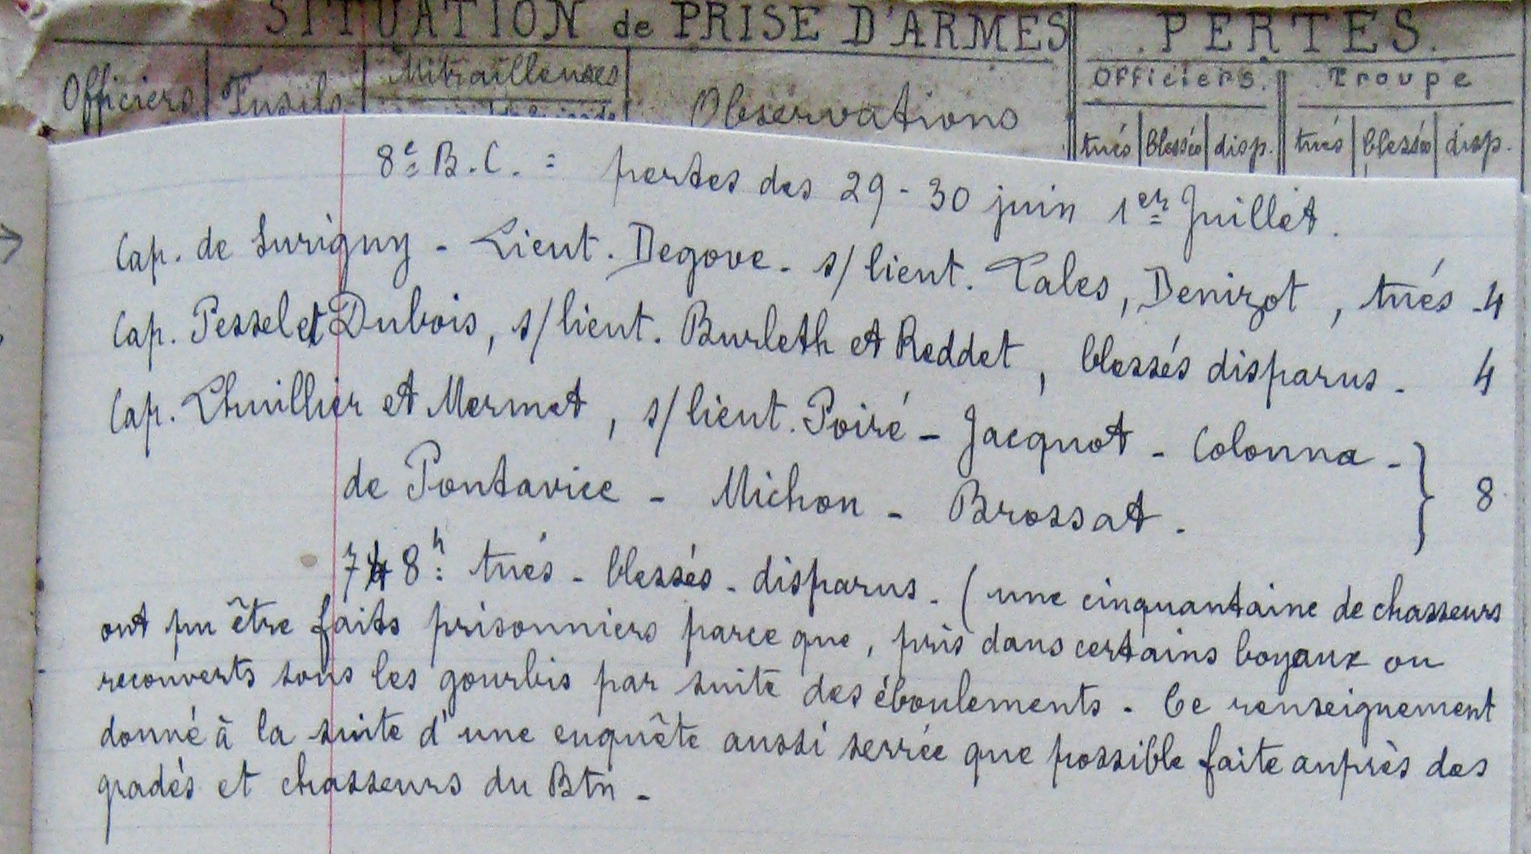 SITUATION de PRISE D'ARMES
PERTES.
Officiers Fusils Mitrailleuses Observations
Officiers. Troupe
tués blessés disp. tués blessés disp.
8e B.C. = pertes des 29-30 juin 1er Juillet.
Cap. de Surigny - Lieut. Degove - s/lieut. Tales, Denizot, tués - 4
Cap. Pesselet Dubois, s/lieut. Burleth et Reddet, blessés disparus - 4
Cap. Lhuillier et Mermet, s/lieut. Poiré - Jacquot - Colonna -
de Pontavice - Michon - Brossat - } 8
748h: tués - blessés - disparus - (une cinquantaine de chasseurs
ont pu être faits prisonniers parce que, pris dans certains boyaux ou
recouverts sous les gourbis par suite des éboulements. Ce renseignement
donné à la suite d'une enquête aussi serrée que possible faite auprès des
gradés et chasseurs du Btn -